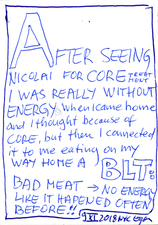 AFTER SEEING
NICOLAI FOR CORE TREAT
MENT
I WAS REALLY WITHOUT
ENERGY when I came home
and I thought because of
CORE, but then I connected
it to me eating on my
WAY HOME A BLT:
BAD MEAT → NO ENERGY
LIKE IT HAPENED OFTEN
BEFORE!!
2018 NYC